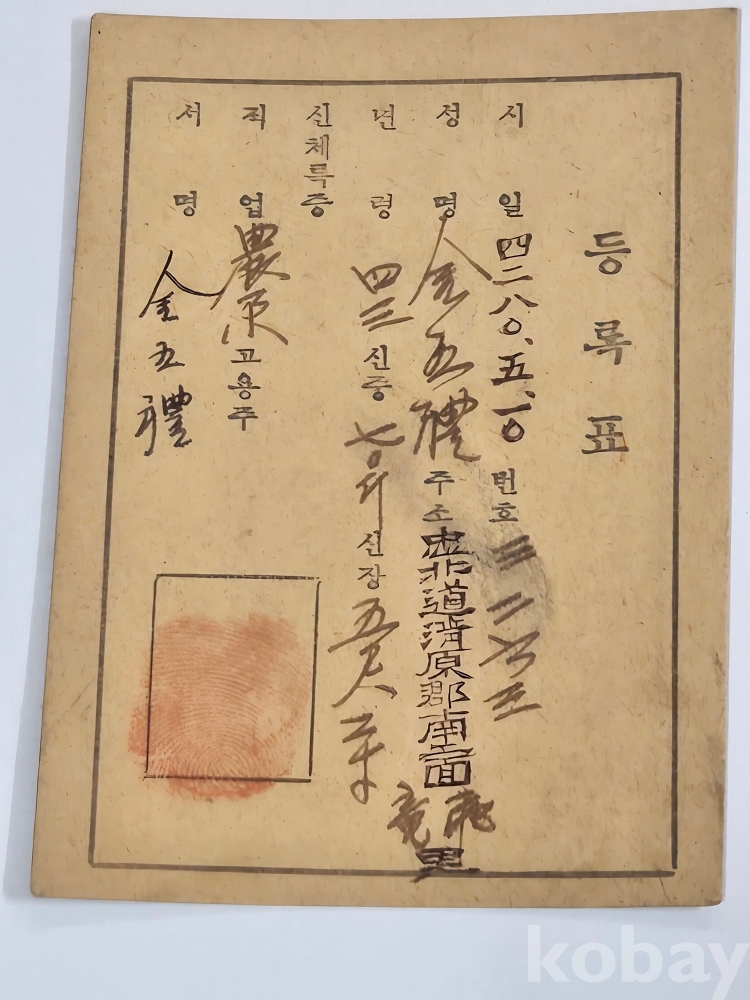 등록표
시일 四二八〇.五.一〇 번호 三二六三
성명 金五禮 주소 忠北道淸原郡南二面
里
년령 四三 신중 七〇斤 신장 五尺二寸
신체특증
직업 農 고용주
서명 金五禮
kobay